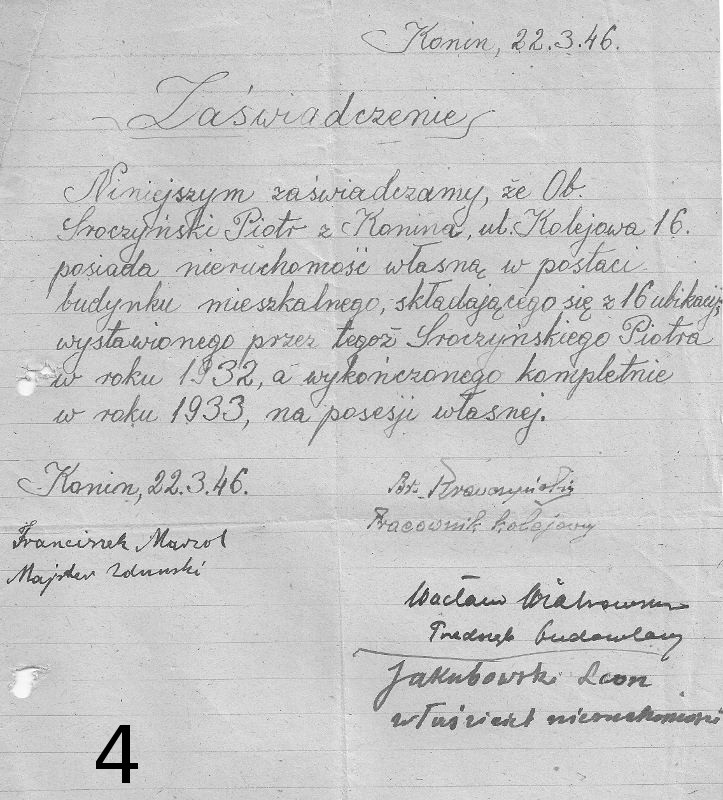 Konin, 22.3.46.
Zaświadczenie
Niniejszym zaświadczamy, że Ob.
Sroczyński Piotr z Konina, ul. Kolejowa 16.
posiada nieruchomość własną w postaci
budynku mieszkalnego, składającego się z 16 ubikacyj,
wystawionego przez tegoż Sroczyńskiego Piotra
w roku 1932, a wykończonego kompletnie
w roku 1933, na posesji własnej.
Konin, 22.3.46.
Franciszek Marzol
Majster Zduński
Br.
Pracownik kolejowy
Wacław
Przedsięb budowlany
Jakubowski Leon
właściciel nieruchomości
4